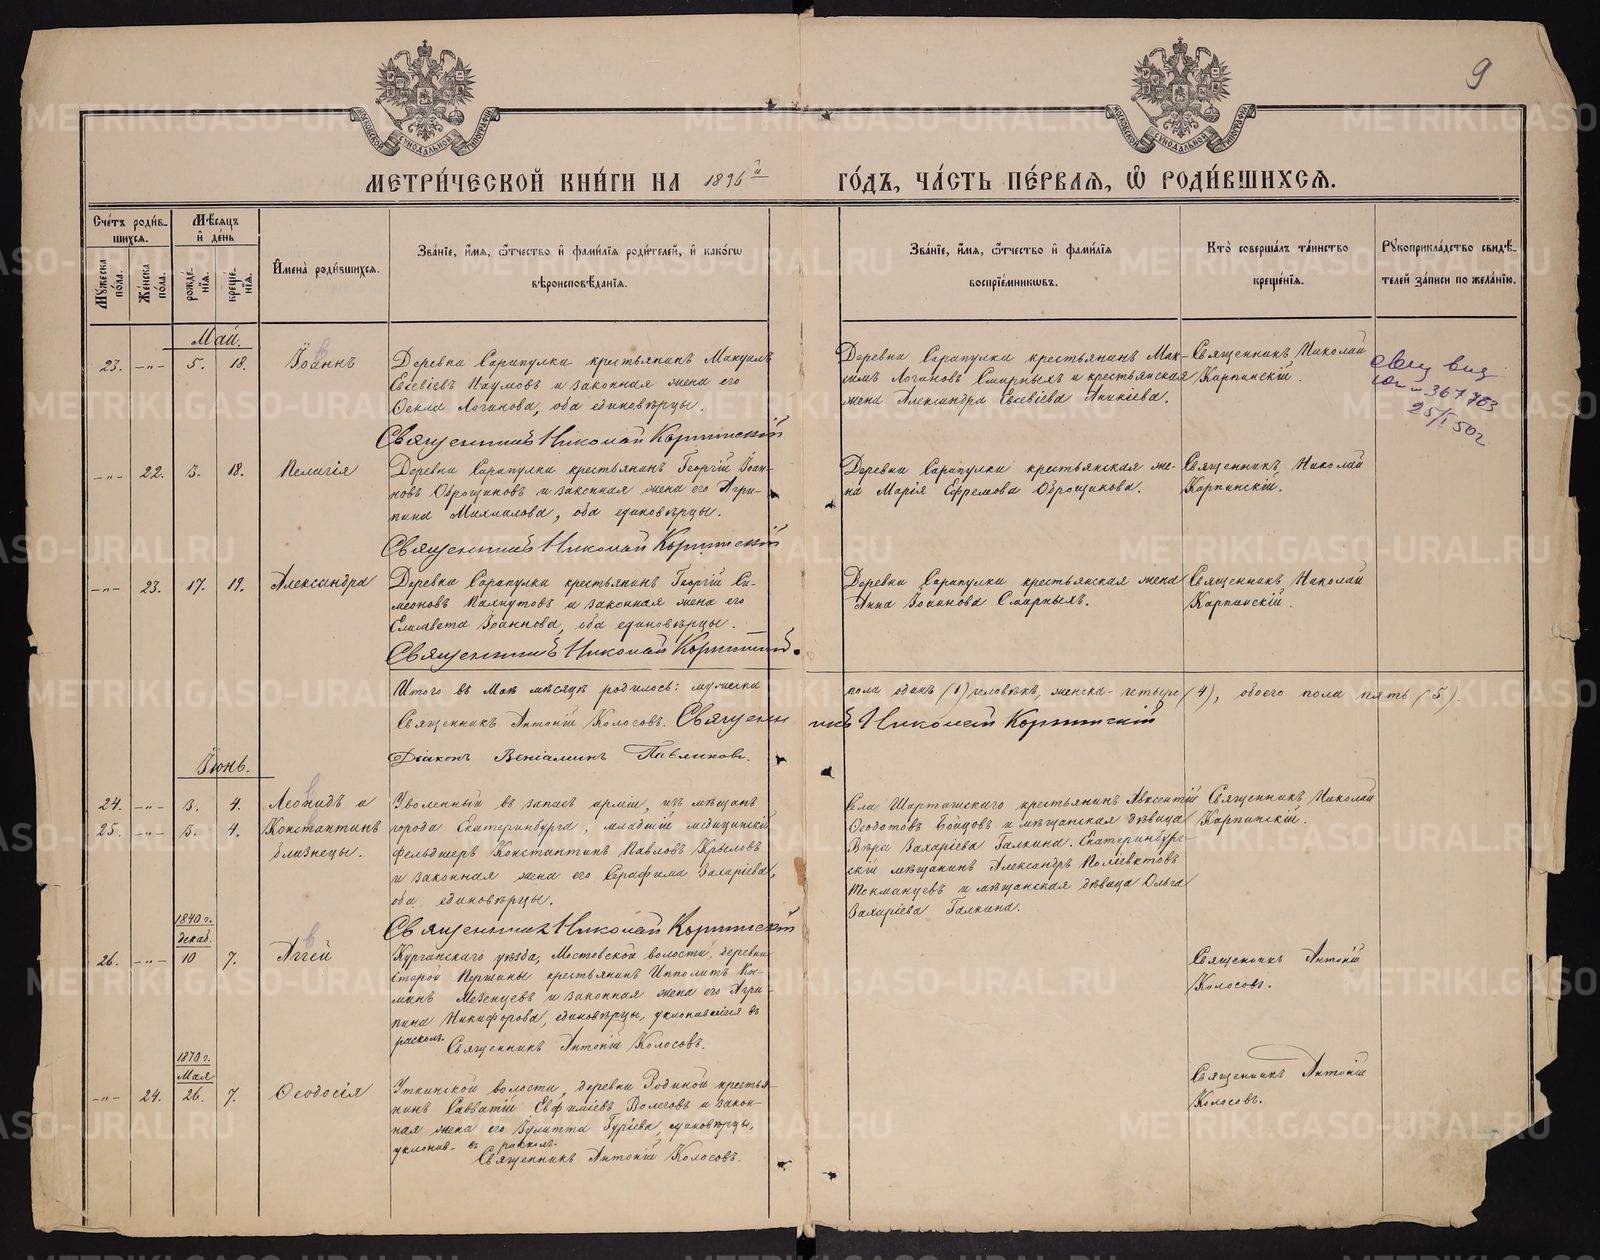 9
МЕТРИЧЕСКОЙ КНИГИ НА 1896й ГОДЪ, ЧАСТЬ ПЕРВАЯ, Ѡ РОДИВШИХСЯ.
Счетъ родившихся.
Мужеска пола.
Женска пола.
Мѣсяцъ и день
рожденія.
крещенія.
Имена родившихся.
Званіе, имя, отчество и фамилія родителей, и какого
вѣроисповѣданія.
Званіе, имя, отчество и фамилія
воспріемниковъ.
Кто совершалъ таинство
крещенія.
Рукоприкладство свидѣтелей записи по желанію.
Май.
23. -"- 5. 18. Іоаннъ
Деревни Сарапулки крестьянинъ Мануилъ
Евсевіевъ Наумовъ и законная жена его
Ѳекла Логинова, оба единовѣрцы.
Священникъ Николай Карпинскій
Деревни Сарапулки крестьянинъ Мак-
симъ Логиновъ Смирныхъ и крестьянская
жена Александра Евсевіева Аникіева.
Священникъ Николай
Карпинскій.
367703
25/I 50г
-"- 22. 3. 18. Пелагія
Деревни Сарапулки крестьянинъ Георгій Іоан-
новъ Оброщиковъ и законная жена его Агри-
пина Михаилова, оба единовѣрцы.
Священникъ Николай Карпинскій
Деревни Сарапулки крестьянская же-
на Марія Ефремова Оброщикова.
Священникъ Николай
Карпинскій.
-"- 23. 17. 19. Александра
Деревни Сарапулки крестьянинъ Георгій Си-
меоновъ Пахнутовъ и законная жена его
Елисавета Іоаннова, оба единовѣрцы.
Священникъ Николай Карпинскій.
Деревни Сарапулки крестьянская жена
Анна Іоаннова Смирныхъ.
Священникъ Николай
Карпинскій.
Итого въ Маѣ мѣсяцѣ родилось: мужеска пола одинъ (1) человѣкъ, женска - четыре (4), обоего пола пять (5).
Священникъ Антоній Колосовъ. Священникъ Николай Карпинскій
Діаконъ Веніаминъ
Іюнь.
24. -"- 3. 4. Леонидъ и
25. -"- 3. 4. Константинъ
близнецы.
Уволенный въ запасъ арміи, изъ мѣщанъ
города Екатеринбурга, младшій медицинскій
фельдшеръ Константинъ Павловъ Крыловъ
и законная жена его Серафима Захаріева,
оба единовѣрцы.
Священникъ Николай Карпинскій
Села Шарташскаго крестьянинъ Авксентій
Ѳеодотовъ Бойцовъ и мѣщанская дѣвица
Вѣра Захаріева Галкина. Екатеринбург-
скій мѣщанинъ Александръ Поліевктовъ
Токманцевъ и мѣщанская дѣвица Ольга
Захаріева Галкина.
Священникъ Николай
Карпинскій.
1840 г.
декаб.
26. -"- 10 7. Аггей
Курганскаго уѣзда, Мостовской волости, деревни
Старой Першины крестьянинъ Ипполитъ Ко-
минъ Мезенцевъ и законная жена его Агри-
пина Никифорова, единовѣрцы, уклонившіеся въ
расколъ.
Священникъ Антоній Колосовъ.
Священникъ Антоній
Колосовъ.
1870 г.
Мая
-"- 24. 26. 7. Ѳеодосія
Уткинской волости, деревни Родиной крестья-
нинъ Савватій Евфиміевъ Волеговъ и закон-
ная жена его Іулитта Гуріева, единовѣрцы,
уклонив- въ расколъ.
Священникъ Антоній Колосовъ.
Священникъ Антоній
Колосовъ.
METRIKI.GASO-URAL.RU